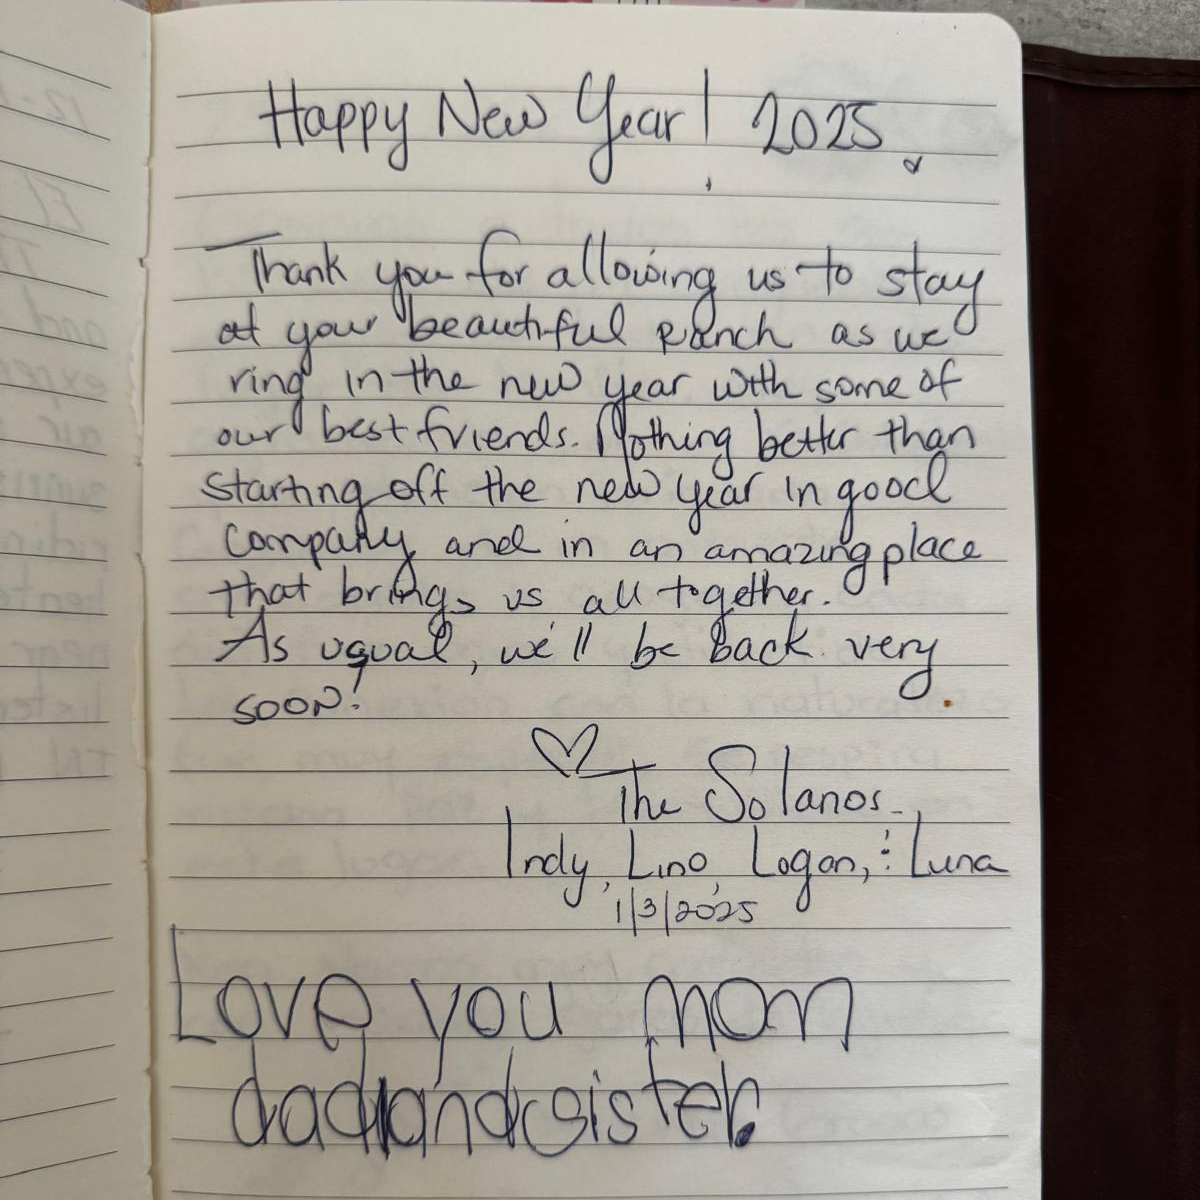 Happy New Year! 2025.
Thank you for allowing us to stay
at your beautiful Ranch as we
ring in the new year with some of
our best friends. Nothing better than
starting off the new year in good
company and in an amazing place
that brings us all together.
As usual, we'll be back very
soon!
The Solanos.
Indy, Lino, Logan, & Luna
1/3/2025
Love you mom
dad and sister.